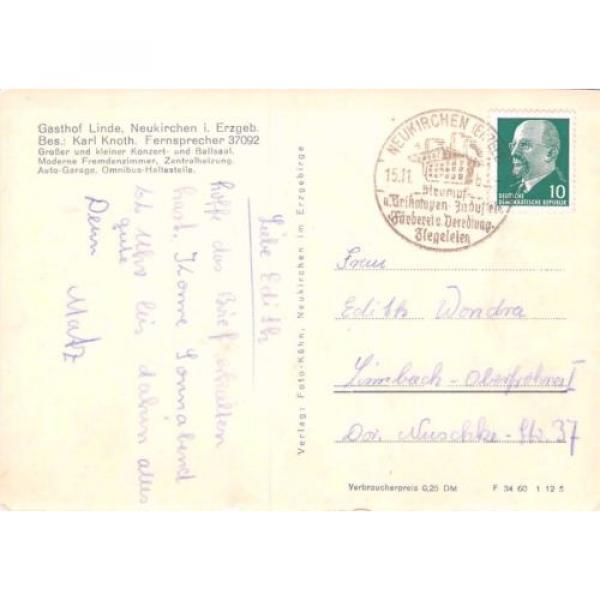 Gasthof Linde, Neukirchen i. Erzgeb.
Bes.: Karl Knoth. Fernsprecher 37092
Großer und kleiner Konzert- und Ballsaal.
Moderne Fremdenzimmer, Zentralheizung.
Auto-Garage. Omnibus-Haltestelle.
Liebe Edith
hoffe das Brief erhalten
hast. Kome Sonnabend
Uhr bis dahin alles
gute
Dein Matz
Verlag: Foto-Kühn, Neukirchen im Erzgebirge
NEUKIRCHEN (ERZGEB
15.11
Strumpf-
u. Trikotagen-Industrie
Färberei u. Veredlung.
Ziegeleien
DEUTSCHE
DEMOKRATISCHE REPUBLIK
10
Frau
Edith Wondra
Limbach-Oberfrohna I
Dor. Nuschke-Str. 37
Verbraucherpreis 0,25 DM
F 34 60 1 12 5